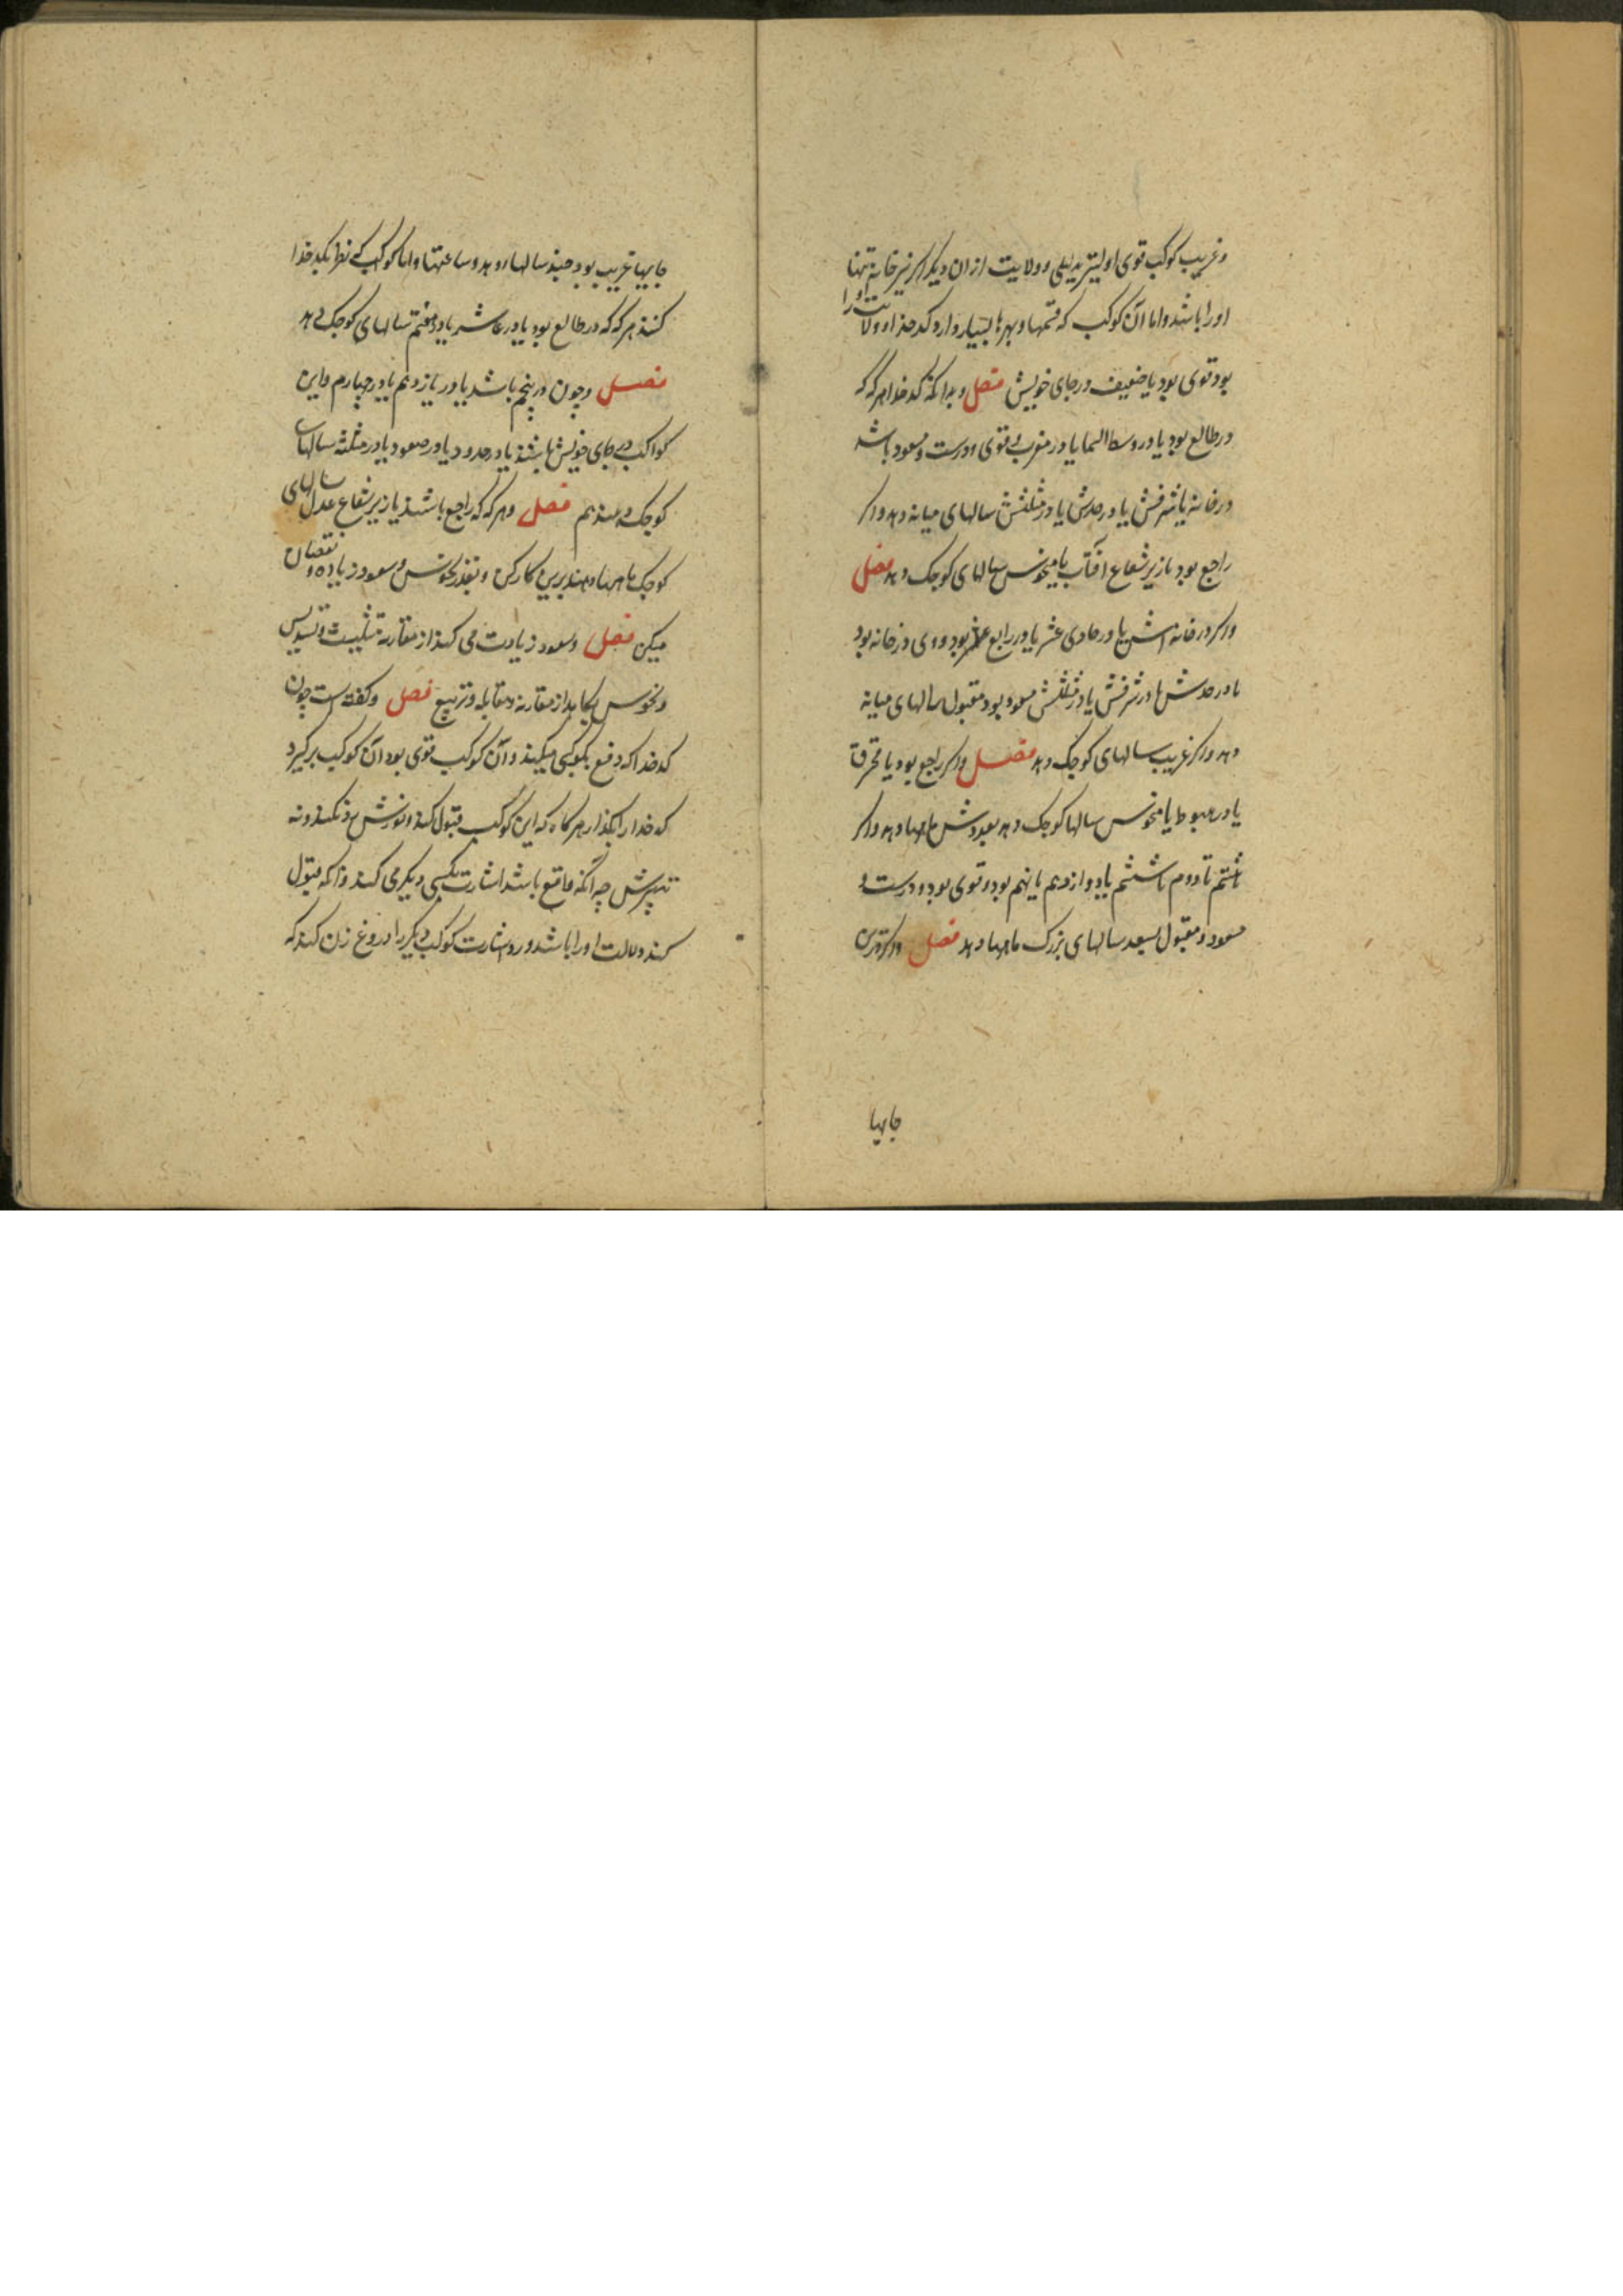 و غریب کوکب قوی اولیتر بدلیلی و ولایت از ان دیکر اکر نیز خانه تنها
اورا باشد و اما آن کوکب که قسمها و بهرها بسیار دارد کدخذا و ولایت او را
بود قوی بود یا ضعیف در جای خویش فصل و بدانکه کدخدا هر که که
در طالع بود یا در وسط السما یا در مغرب قوی و درست و مسعود باشد
در خانه یا شرفش یا در حدش یا در مثلثش سالهای میانه دهد و اکر
راجع بود یا زیر شعاع آفتاب یا منحوس سالهای کوجک دهد فصل
و اکر در خانه اش یا در حادی عشر یا در رابع بود و وی در خانه بود
یا در حدش یا در شرفش یا در مثلثش مسعود بود مقبول سالهای میانه
دهد و اکر غریب سالهای کوجک دهد فصل و اکر راجع بود یا محترق
یا در هبوط یا منحوس سالها کوجک دهد بعددش ماهها دهد و اکر
هشتم تا دوم تا ششم یا دوازدهم یا نهم بود و قوی بود و درست و
مسعود و مقبول بسعد سالهای بزرک ماهها دهد فصل و اکر درین
جایها
جایها غریب بود جند سالها دهد و ساعتها و اما کوکب که نظر بکدخدا
کنند هر که که در طالع بود یا در عاشر یا در هفتم سالهای کوجک دهد
فصل و چون در پنجم باشد یا در یازدهم یا در چهارم و این
کواکب در جای خویش باشند یا در حدود یا در صعود یا در مثلثه سالهاء
کوجک دهند هم فصل و هر که که راجع باشند یا زیر شعاع عدل سالهای
کوجک ماهها دهند برین کار کن و بقدر نحوس و سعود زیاده و نقصان
میکن فصل و سعود زیادت می کنند از مقارنه تثلیث و تسدیس
و نحوس بکاهد از مقارنه و مقابله و تربیع فصل و کفته است چون
کدخدا که دفع بکوکبی میکند و آن کوکب قوی بود آن کوکب برکیرد
کدخدا را بکذار هر کاه که این کوکب قبول کند و نورش رد نکند و نه
تدبیرش چه آنکه دافع باشد اشارت بکسی دیکر می کند و آنکه قبول
کند دلالت او را باشد و رد اشارت کوکب دیکر را دروغ زن کند که